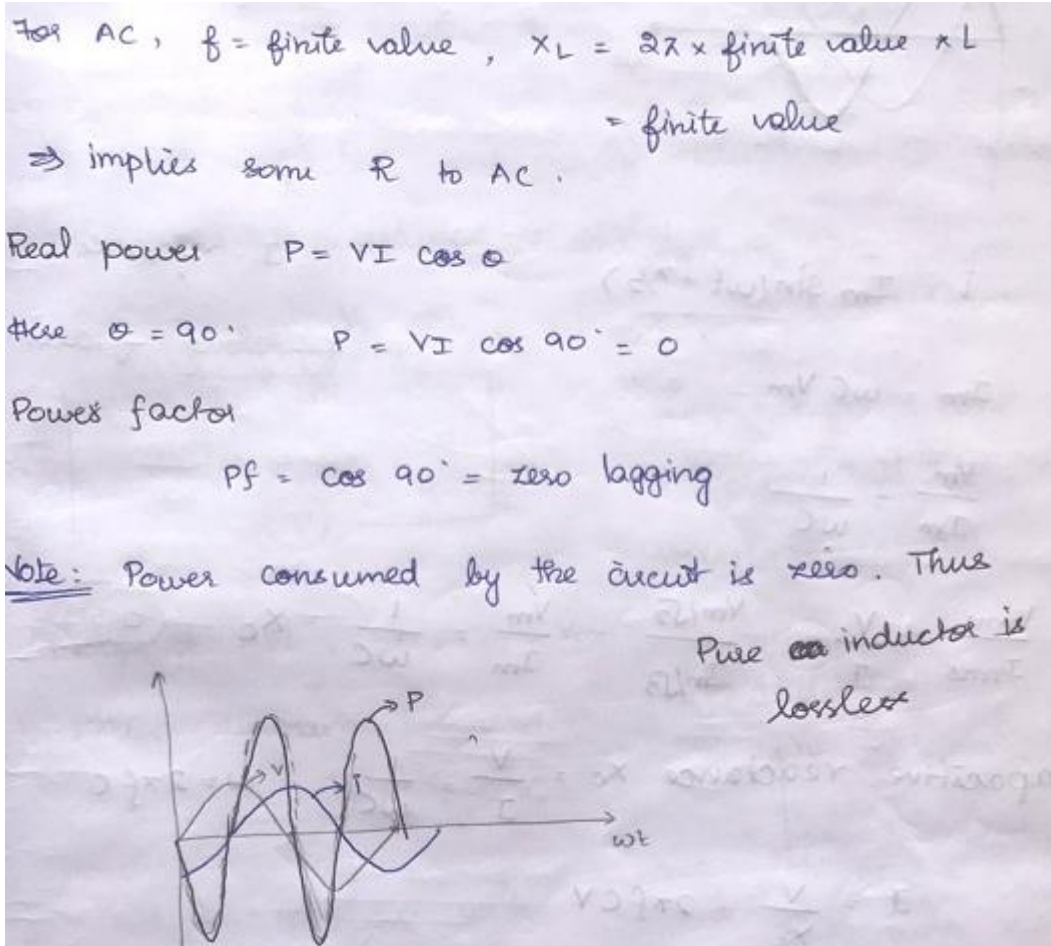 For AC, f = finite value, XL = 2π × finite value × L
= finite value
⇒ implies some R to AC.
Real power P = VI cos θ
Here θ = 90° P = VI cos 90° = 0
Power factor
Pf = cos 90° = zero lagging
Note: Power consumed by the circuit is zero. Thus
Pure inductor is
lossless
P
V
I
ωt